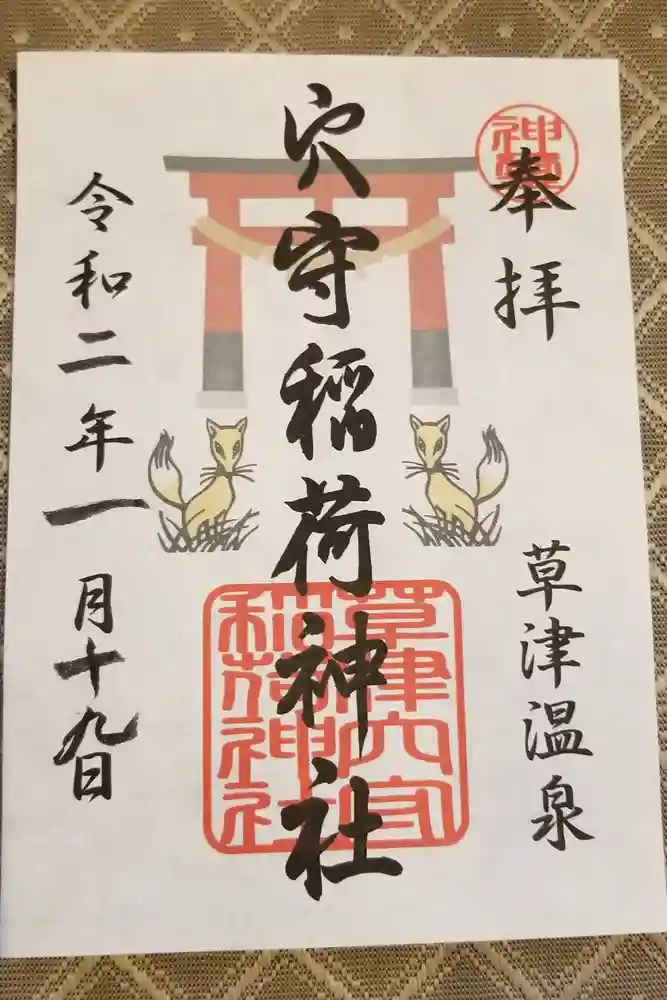 奉拝
草津温泉
穴守稲荷神社
草津穴守
稲荷神社
令和二年一月十九日